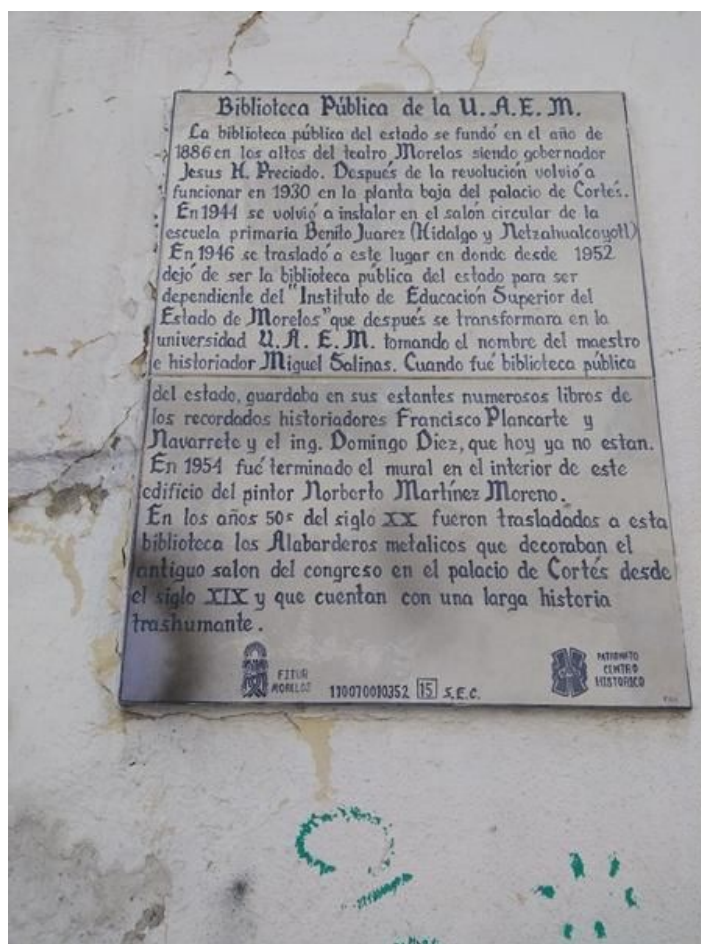 Biblioteca Pública de la U.A.E.M.
La biblioteca pública del estado se fundó en el año de
1886 en los altos del teatro Morelos siendo gobernador
Jesus H. Preciado. Después de la revolución volvió a
funcionar en 1930 en la planta baja del palacio de Cortés.
En 1944 se volvió a instalar en el salón circular de la
escuela primaria Benito Juarez (Hidalgo y Netzahualcoyotl)
En 1946 se trasladó a este lugar en donde desde 1952
dejó de ser la biblioteca pública del estado para ser
dependiente del "Instituto de Educación Superior del
Estado de Morelos" que después se transformara en la
universidad U.A.E.M. tomando el nombre del maestro
e historiador Miguel Salinas. Cuando fué biblioteca pública
del estado, guardaba en sus estantes numerosos libros de
los recordados historiadores Francisco Plancarte y
Navarrete y el ing. Domingo Diez, que hoy ya no estan.
En 1954 fué terminado el mural en el interior de este
edificio del pintor Norberto Martínez Moreno.
En los años 50s del siglo XX fueron trasladados a esta
biblioteca los Alabarderos metalicos que decoraban el
antiguo salon del congreso en el palacio de Cortés desde
el siglo XIX y que cuentan con una larga historia
trashumante.
FITUR
MORELOS
110070010352 15 S.E.C.
PATRONATO
CENTRO
HISTORICO